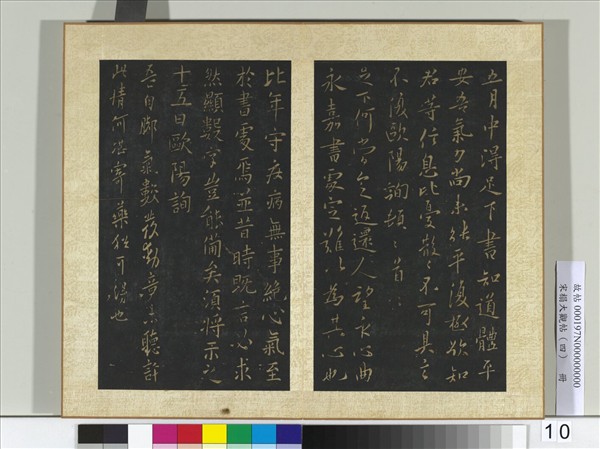 五月中得足下書知道體平
安吾氣力尚未能平復極欲知
君等信息比憂散々不可具言
不復歐陽詢頓々首々
足下何當定返還人望示心曲
永嘉書處定難以為其心也
比年守疾病無事絕心氣至
於書處焉並昔時既言必求
然顯數字豈能備矣須將示之
十五日歐陽詢
吾自腳氣數發動竟未聽許
此情何堪寄藥猶可得也
故帖 000197N000000000
宋搨大觀帖（四） 冊
10